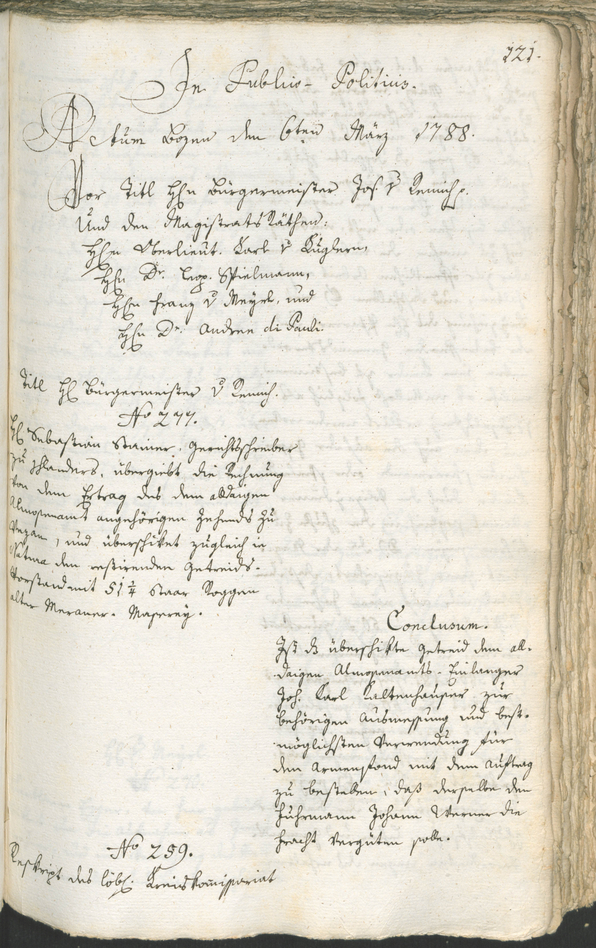 121.
In Publico-Politicis.
Actum Bozen den 6ten März 1788.
Vor Titl Hhn Bürgermeister Jos. v Remich
Und den Magistrats Räthen:
Hhn Oberlieut. Karl v Küglern,
Hhn Dr. Leop. Spielmann,
Hhn Franz v Meyrl, und
Hhn Dr. Andreen di Pauli.
Titl Hl Bürgermeister v Remich.
No 277.
Hl Sebastian Stainer, Gerichtschreiber
zu Schlanders, übergiebt die Rechnung
von dem Ertrag des dem alldaigen
Almosenamt angehörigen Zehends zu
und überschiket zugleich in
Natura den restirenden Getreids-
Vorstand mit 51 1/4 Staar Roggen
alter Meraner-Maserey.
Conclusum.
Ist das überschikte Getreid dem all-
daigen Almosenamts-Einlanger
Joh. Karl Kaltenhauser zur
behörigen Ausmessung und best-
möglichsten Verwendung für
den Armenfond mit dem Auftrag
zu bestellen, daß derselbe dem
Fuhrmann Johann Werner die
Fracht vergüten solle.
No 259.
Reskript des löbl. Kreiskommissariat